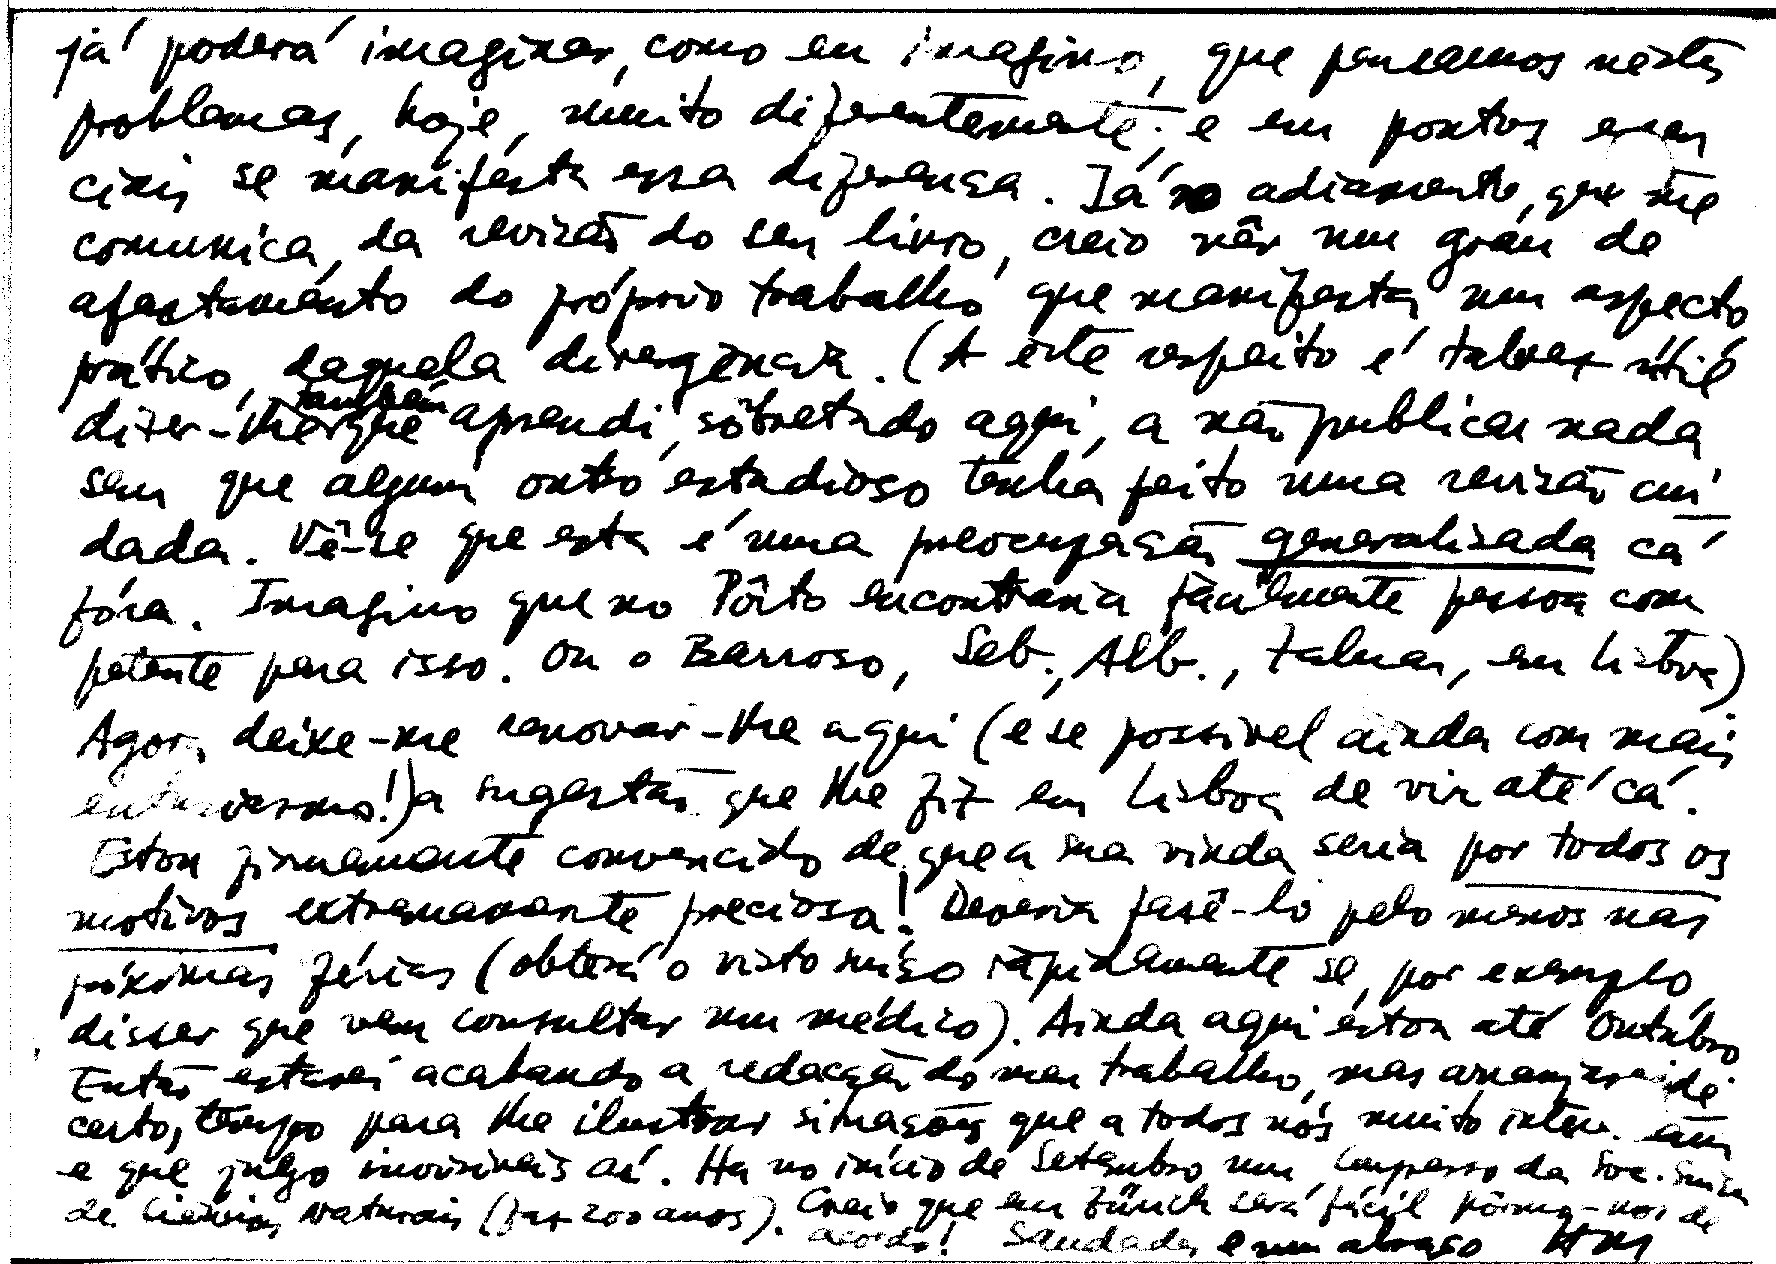 já poderá imaginar, como eu imagino, que pensamos nestes
problemas, hoje, muito diferentemente; e em pontos essen
ciais se manifesta essa diferença. Já no adiamento, que me
comunica, da revisão do seu livro, creio vêr um grau de
afastamento do próprio trabalho que manifesta um aspecto
prático, daquela divergência. (A êste respeito é talvez útil
dizer-lhe que também aprendi, sôbretudo aqui, a não publicar nada
sem que algum outro estudioso tenha feito uma revisão cui
dada. Vê-se que esta é uma preocupação generalizada cá
fóra. Imagino que no Pôrto encontraria fàcilmente pessoa com
petente para isso. Ou o Barroso, Seb., Alb., Zaluar, em Lisboa)
Agora deixe-me renovar-lhe aqui (e se possivel ainda com mais
entusiasmo!) a sugestão que lhe fiz em Lisboa de vir até cá.
Estou firmemente convencido de que a sua vinda seria por todos os
motivos extremamente preciosa! Deveria fasê-lo pelo menos nas
próximas férias (obterá o visto suíso ràpidamente se, por exemplo,
disser que vem consultar um médico). Ainda aqui estou até Outubro
Então estarei acabando a redacção do meu trabalho, mas arranjarei de
certo, tempo para lhe ilustrar situações que a todos nós muito
e que julgo inviáveis aí. Ha no início de Setembro um Congresso da Soc. Suiza
de Ciências Naturais (faz 200 anos). Creio que em Zürich será fácil pôrmo-nos de
acordo! Saudades e um abraço HM